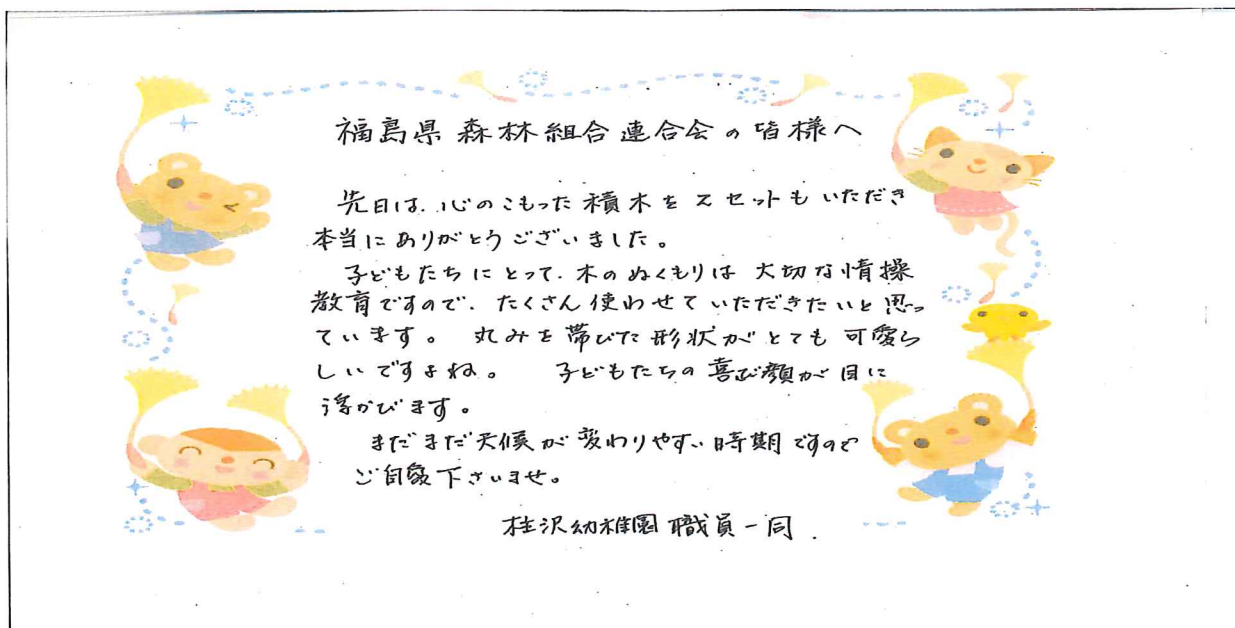 福島県森林組合連合会の皆様へ
先日は、心のこもった積木を2セットもいただき
本当にありがとうございました。
子どもたちにとって、木のぬくもりは大切な情操
教育ですので、たくさん使わせていただきたいと思っ
ています。 丸みを帯びた形状がとても可愛ら
しいですよね。 子どもたちの喜ぶ顔が目に
浮かびます。
まだまだ天候が変わりやすい時期ですので
ご自愛下さいませ。
桂沢幼稚園職員一同.